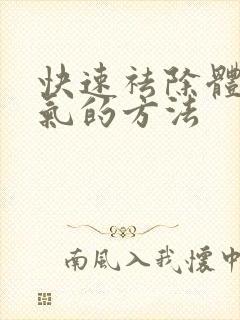 快速祛除體
氣的方法
南風入我懷中